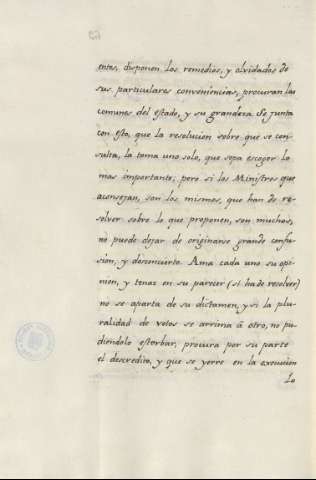 entes, disponen los remedios, y olvidados de
sus particulares conveniencias, procuran las
comunes del estado, y su grandeza. Se junta
con esto, que la resolucion sobre que se con-
sulta, la toma uno solo, que sepa escoger lo
mas importante; pero si los Ministros que
aconsejan, son los mismos, que han de re-
solver sobre lo que proponen, son muchos,
no puede dejar de originarse grande confu-
sion, y desconcierto. Ama cada uno su opi-
nion, y tenaz en su parecer (si ha de resolver)
no se aparta de su dictamen, y si la plu-
ralidad de votos se arrima á otro, no pu-
diendolo estorbar, procura por su parte
el descredito, y que se yerre en la execucion
Lo